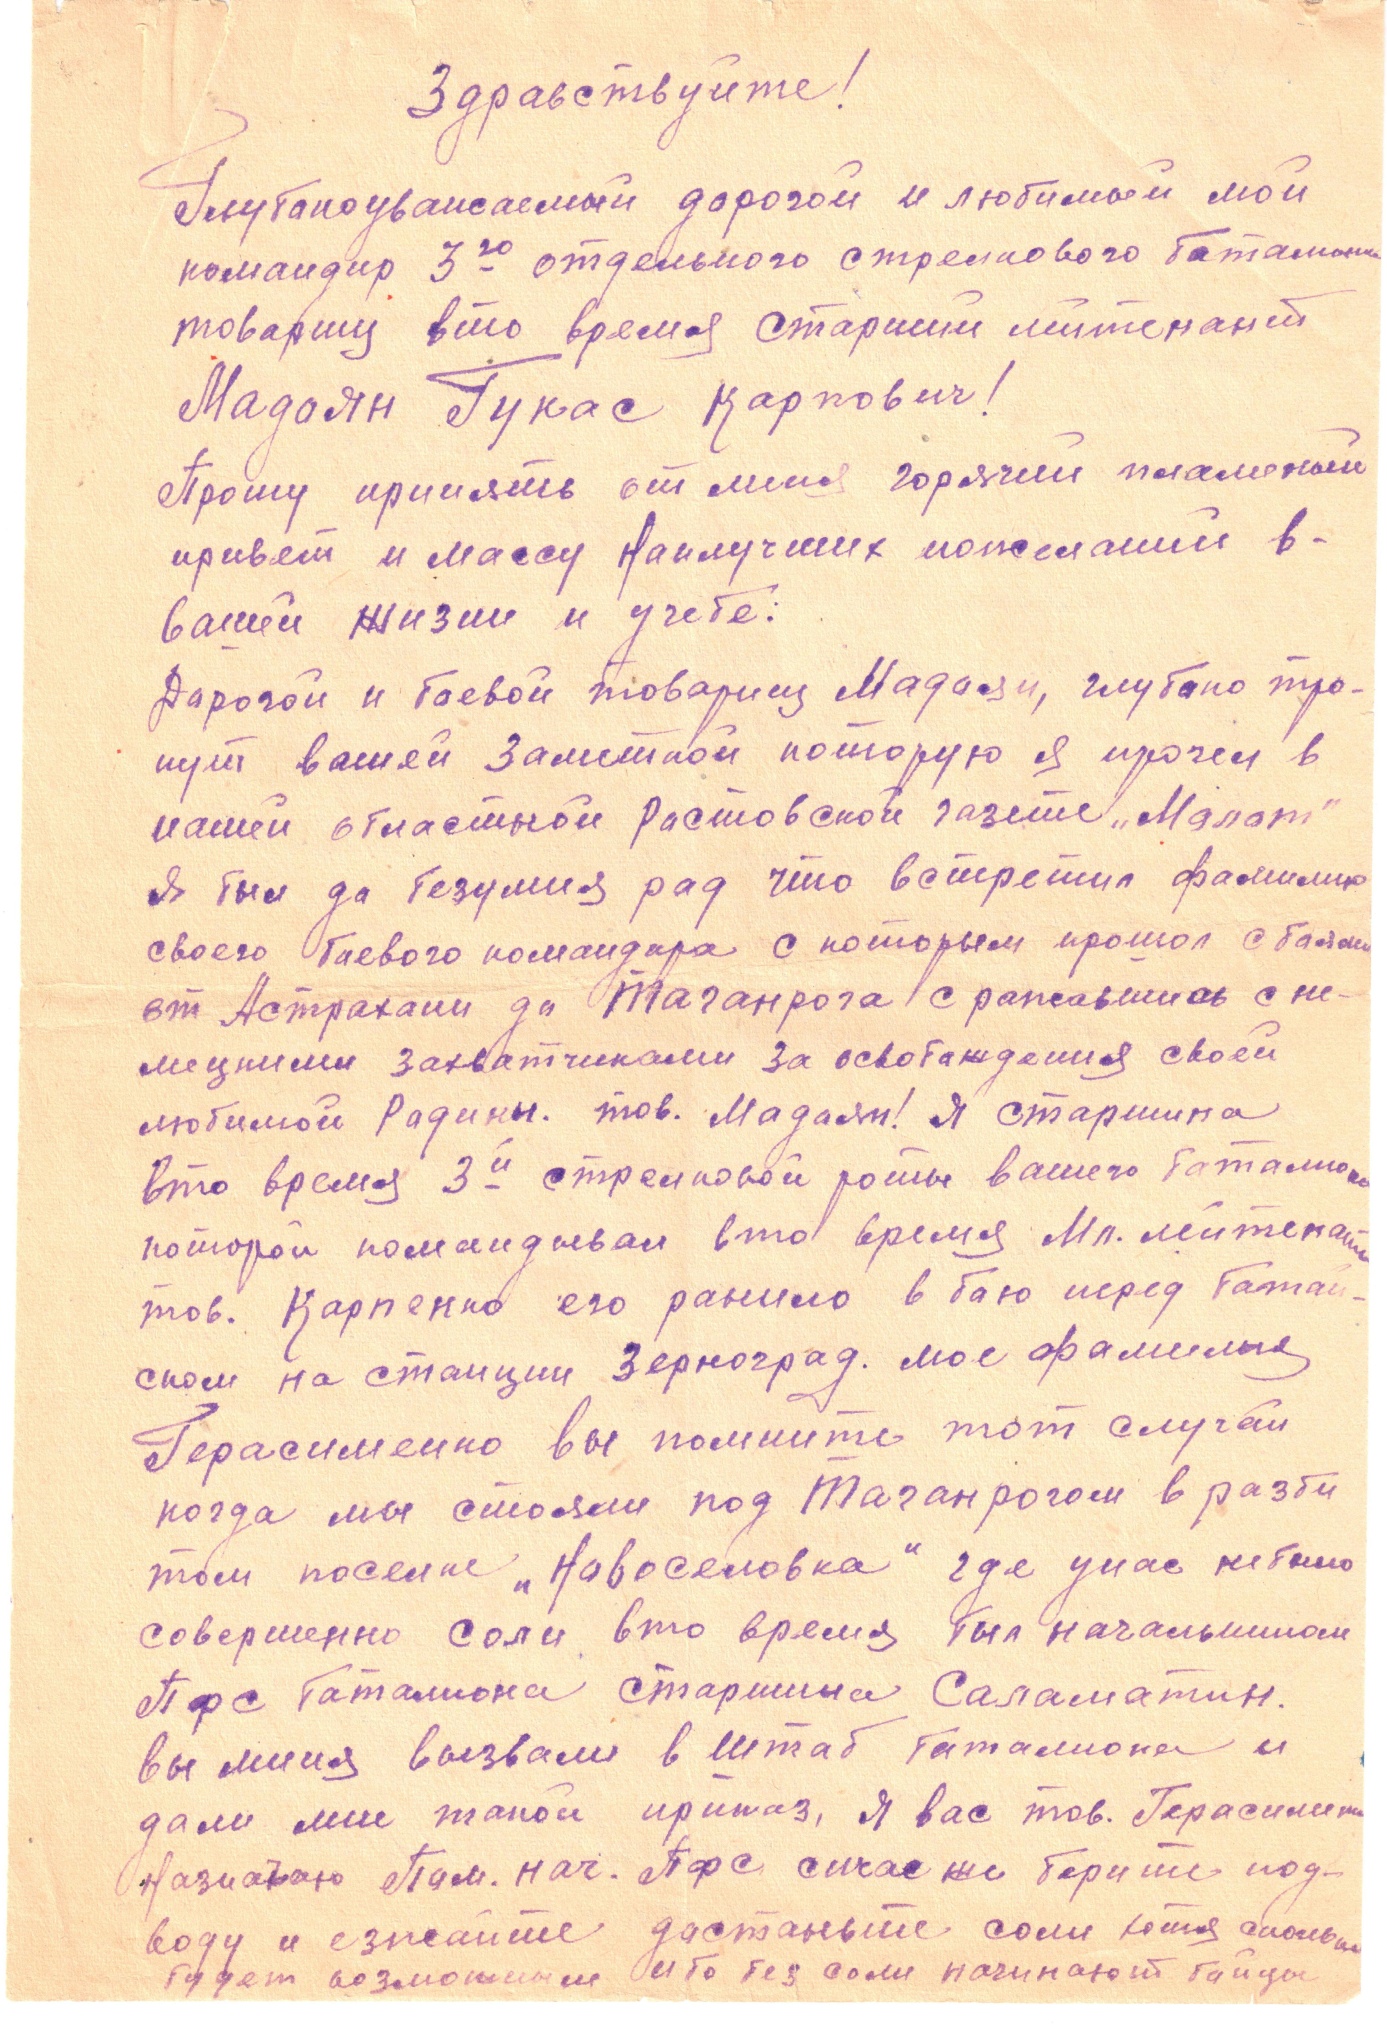 Здравствуйте!
Глубакоуважаемый дорогой и любимый мой
командир 3го отдельного стрелкового баталиона
товарищ вто время старший лейтенант
Мадоян Гукас Карпович!
Прошу принять от меня горячий пламеный
привет и массу Наилучших пожеланий в-
вашей жизни и учебе:
Дарогой и баевой товарищ Мадоян, глубоко тро-
нут вашей заметкой которую я прочел в
нашей областной Ростовской газете „Молот"
Я был да безумия рад что встретил фамилию
своего баевого командира с которым прошол с баями
от Астрахани до Таганрога сражавшись с не-
мецкими захватчиками за освобаждения своей
любимой Радины. тов. Мадоян! Я старшина
вто время 3й стрелковой роты вашего баталиона
которой командывал вто время Мл. лейтенант
тов. Карпенко его ранило в баю перед Батай-
ском на станции Зерноград. мое фамилия
Герасименко вы помните тот случай
когда мы стояли под Таганрогом в разби
том поселке „Новоселовка" где унас небыло
совершенно соли вто время был начальником
Пфс баталиона старшина Саламатин.
вы миня вызвали в штаб баталиона и
дали мне такой приказ, я вас тов. Герасименко
Назначаю Пом. нач. Пфс сичас же берите под-
воду и езжайте достаньте соли хотя сколько
будет возможным ибо без соли начинают байцы